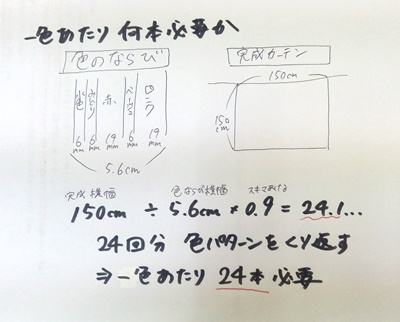 一色あたり 何本必要か
色のならび
完成カーテン
水色
みどり
赤
ベージュ
ピンク
6mm
6mm
19mm
6mm
19mm
5.6cm
150cm
150cm
完成横幅
色ならび横幅
スキマあける
150cm ÷ 5.6cm × 0.9 = 24.1...
24回分 色パターンをくり返す
⇒一色あたり 24本必要